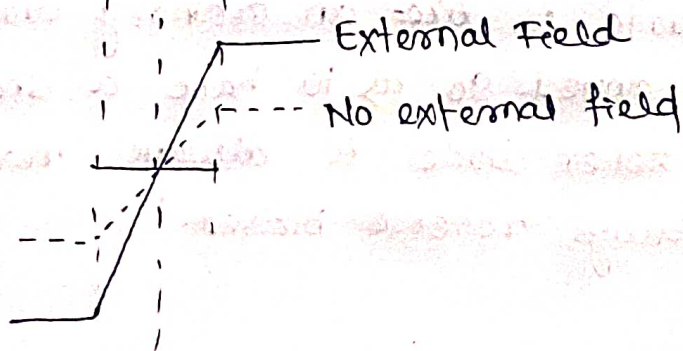 External Field
No external field